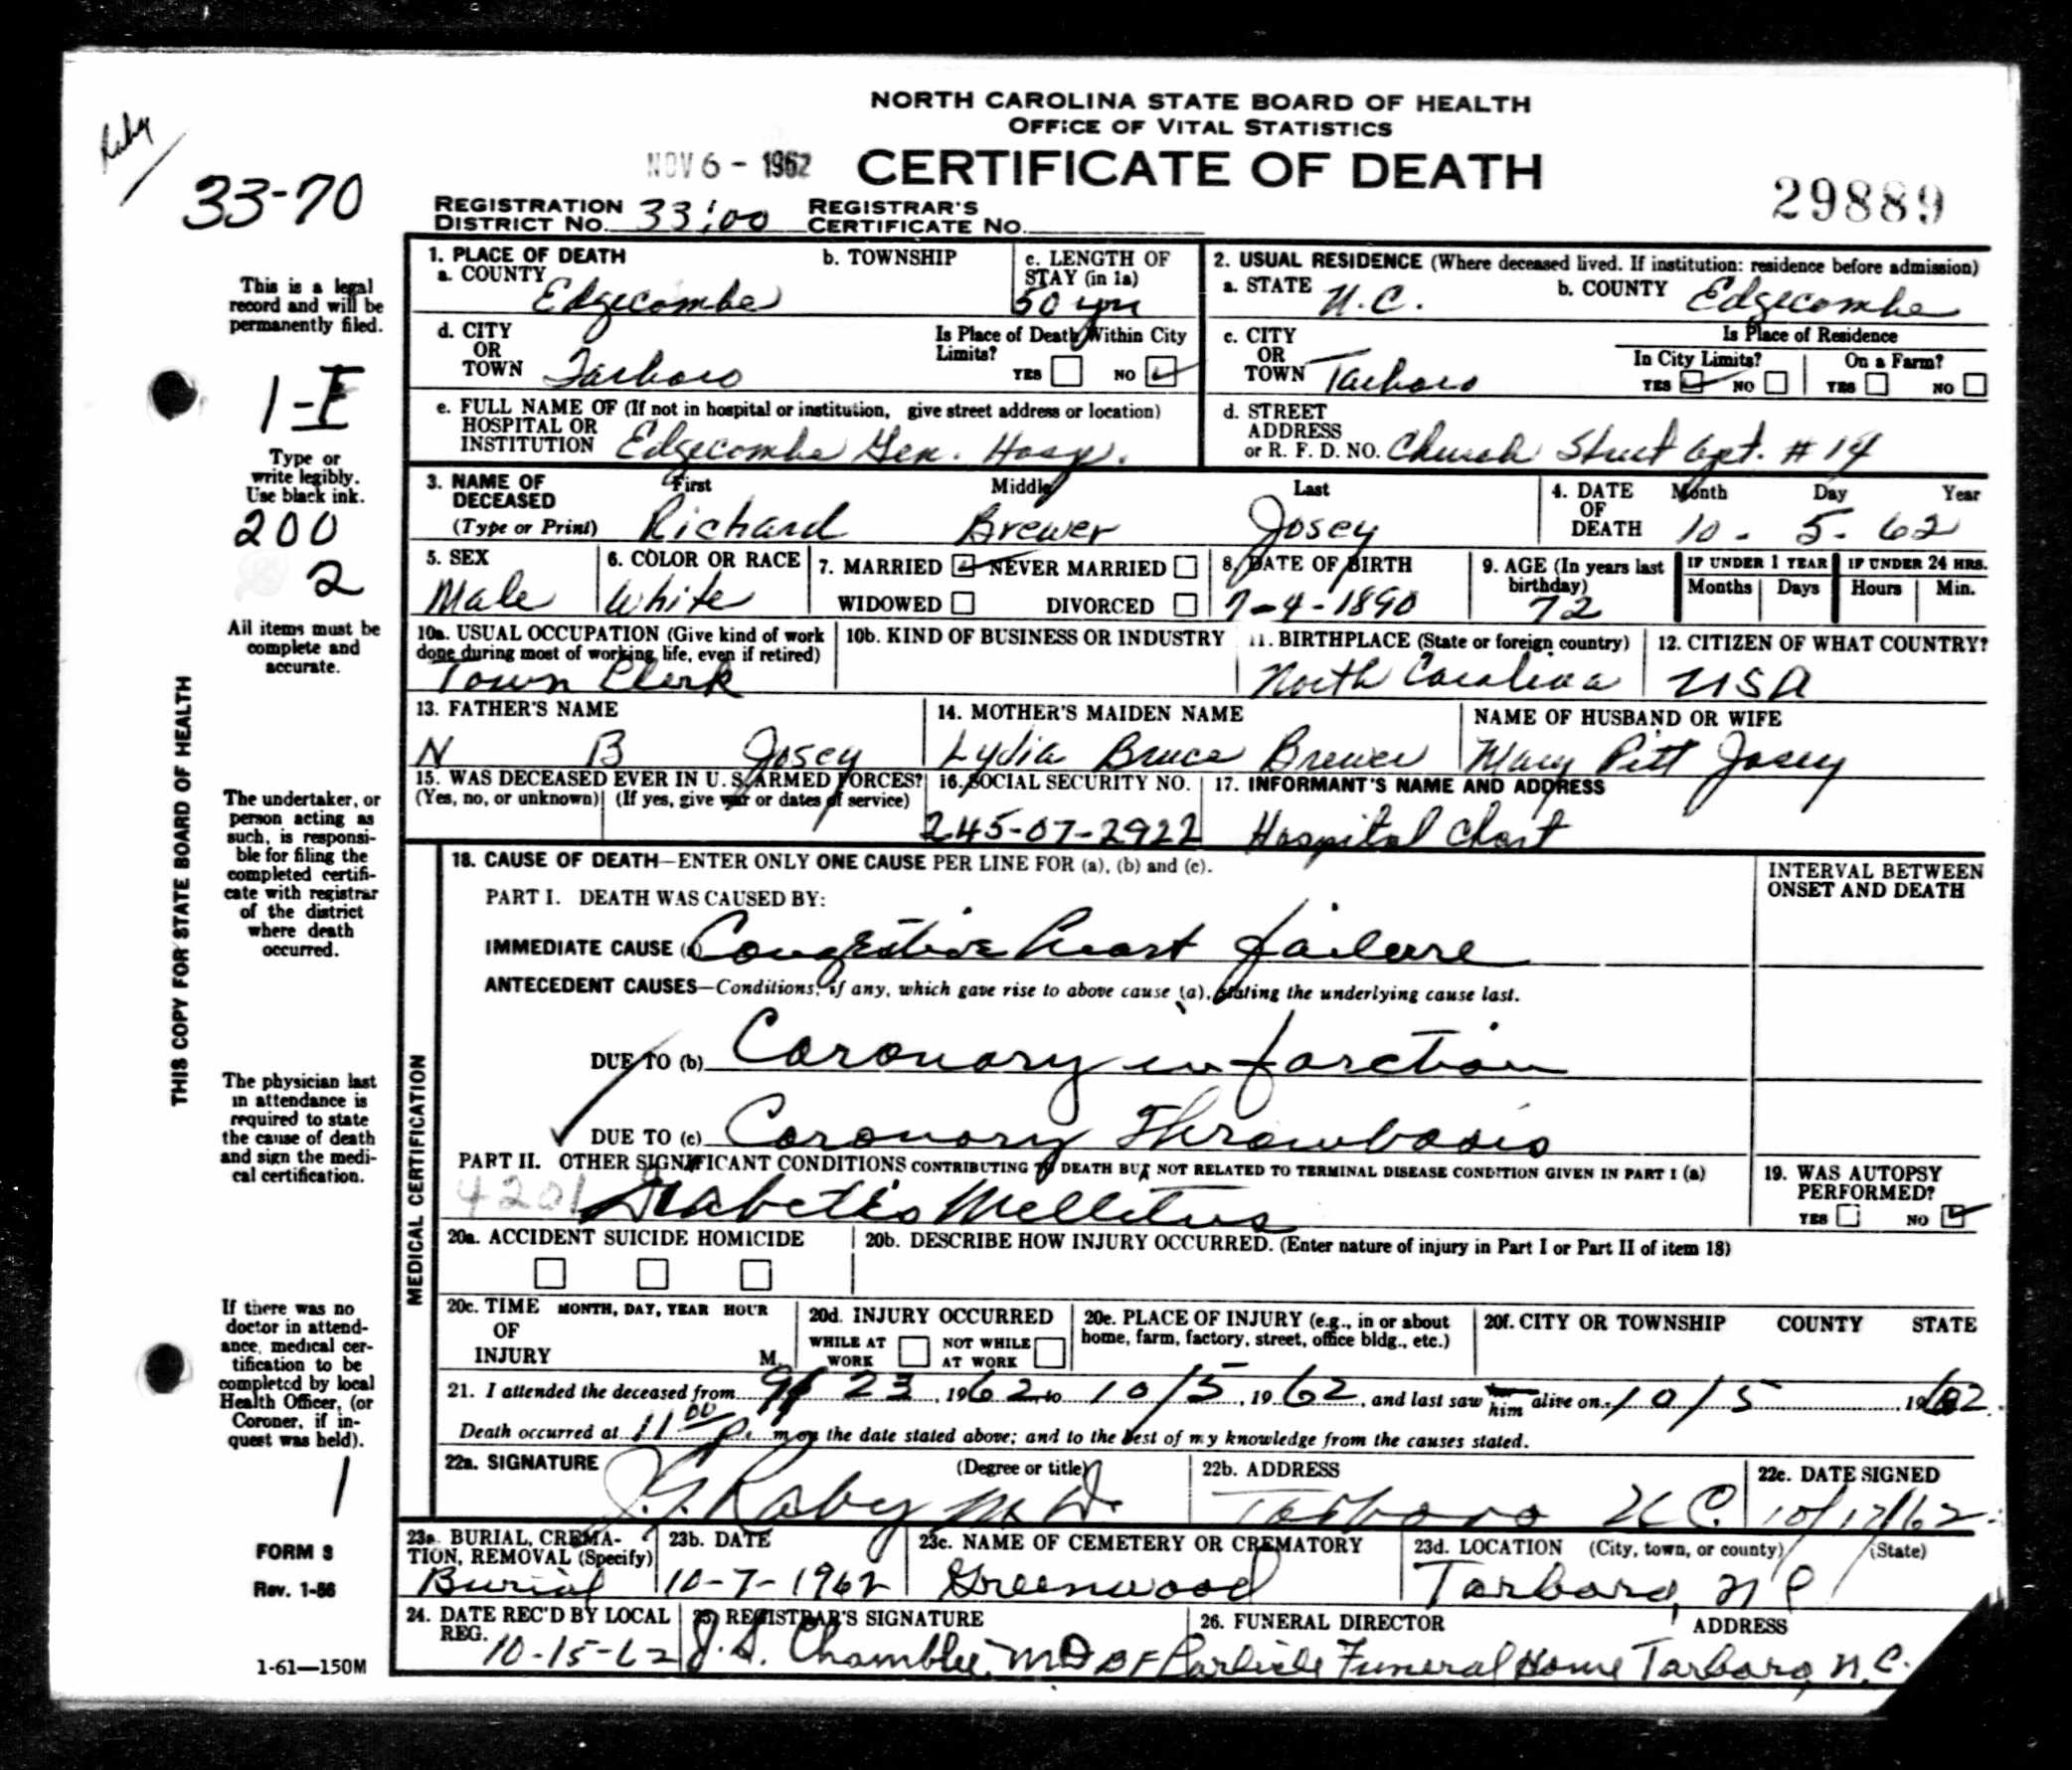 NORTH CAROLINA STATE BOARD OF HEALTH
OFFICE OF VITAL STATISTICS
NOV 6 - 1962 CERTIFICATE OF DEATH
Raby
33-70
29889
REGISTRATION DISTRICT No. 33:00 REGISTRAR'S CERTIFICATE No.
This is a legal
record and will be
permanently filed.
1-I
Type or
write legibly.
Use black ink.
200
2
All items must be
complete and
accurate.
THIS COPY FOR STATE BOARD OF HEALTH
The undertaker, or
person acting as
such, is responsi-
ble for filing the
completed certifi-
cate with registrar
of the district
where death
occurred.
The physician last
in attendance is
required to state
the cause of death
and sign the medi-
cal certification.
If there was no
doctor in attend-
ance, medical cer-
tification to be
completed by local
Health Officer, (or
Coroner, if in-
quest was held).
1
FORM 8
Rev. 1-56
1-61—150M
1. PLACE OF DEATH
a. COUNTY Edgecombe
b. TOWNSHIP
c. LENGTH OF STAY (in 1a) 50 yrs
2. USUAL RESIDENCE (Where deceased lived. If institution: residence before admission)
a. STATE N.C. b. COUNTY Edgecombe
d. CITY OR TOWN Tarboro
Is Place of Death Within City Limits? YES NO
c. CITY OR TOWN Tarboro
Is Place of Residence
In City Limits? On a Farm?
YES NO YES NO
e. FULL NAME OF (If not in hospital or institution, give street address or location)
HOSPITAL OR
INSTITUTION Edgecombe Gen. Hosp.
d. STREET ADDRESS or R. F. D. NO. Church Street Apt. # 14
3. NAME OF DECEASED (Type or Print)
First Middle Last
Richard Brewer Josey
4. DATE OF DEATH Month Day Year
10 - 5 - 62
5. SEX Male
6. COLOR OR RACE White
7. MARRIED NEVER MARRIED
WIDOWED DIVORCED
8. DATE OF BIRTH 7-4-1890
9. AGE (In years last birthday) 72
IF UNDER 1 YEAR Months Days
IF UNDER 24 HRS. Hours Min.
10a. USUAL OCCUPATION (Give kind of work
done during most of working life, even if retired)
Town Clerk
10b. KIND OF BUSINESS OR INDUSTRY
11. BIRTHPLACE (State or foreign country)
North Carolina
12. CITIZEN OF WHAT COUNTRY?
USA
13. FATHER'S NAME
N B Josey
14. MOTHER'S MAIDEN NAME
Lydia Bruce Brewer
NAME OF HUSBAND OR WIFE
Mary Pitt Josey
15. WAS DECEASED EVER IN U. S. ARMED FORCES?
(Yes, no, or unknown) (If yes, give war or dates of service)
16. SOCIAL SECURITY NO.
245-07-2922
17. INFORMANT'S NAME AND ADDRESS
Hospital Chart
MEDICAL CERTIFICATION
18. CAUSE OF DEATH—ENTER ONLY ONE CAUSE PER LINE FOR (a), (b) and (c).
INTERVAL BETWEEN
ONSET AND DEATH
PART I. DEATH WAS CAUSED BY:
IMMEDIATE CAUSE (a) Congestive heart failure
ANTECEDENT CAUSES—Conditions, if any, which gave rise to above cause (a), stating the underlying cause last.
DUE TO (b) Coronary infarction
DUE TO (c) Coronary Thrombosis
PART II. OTHER SIGNIFICANT CONDITIONS CONTRIBUTING TO DEATH BUT NOT RELATED TO TERMINAL DISEASE CONDITION GIVEN IN PART I (a)
4201 Diabetes Mellitus
19. WAS AUTOPSY
PERFORMED?
YES NO
20a. ACCIDENT SUICIDE HOMICIDE
20b. DESCRIBE HOW INJURY OCCURRED. (Enter nature of injury in Part I or Part II of item 18)
20c. TIME OF INJURY MONTH, DAY, YEAR HOUR M.
20d. INJURY OCCURRED
WHILE AT WORK NOT WHILE AT WORK
20e. PLACE OF INJURY (e.g., in or about
home, farm, factory, street, office bldg., etc.)
20f. CITY OR TOWNSHIP COUNTY STATE
21. I attended the deceased from 9/ 23, 1962, to 10/5, 1962, and last saw him alive on 10/5 1962.
Death occurred at 11 00 P. m on the date stated above; and to the best of my knowledge from the causes stated.
22a. SIGNATURE (Degree or title)
J. G. Raby M D.
22b. ADDRESS
Tarboro N C.
22c. DATE SIGNED
10/12/62
23a. BURIAL, CREMA-
TION, REMOVAL (Specify)
Burial
23b. DATE
10-7-1962
23c. NAME OF CEMETERY OR CREMATORY
Greenwood
23d. LOCATION (City, town, or county) (State)
Tarboro, N C
24. DATE REC'D BY LOCAL REG.
10-15-62
25. REGISTRAR'S SIGNATURE
J. S. Chamblee MD BF
26. FUNERAL DIRECTOR ADDRESS
Carlisle Funeral Home Tarboro, N.C.